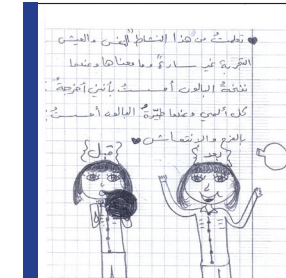 ♥ تعلمتُ من هذا النشاط التنفس والعيش
التجربة غير سارة وما معناها وعندما
نفختُ البالون أحسستُ بأنني أخرجتُ
كل ألمي وعندما طيّرتُ البالون أحسستُ
بالفرح والانتعاش ♥
{قبل} {بعد}